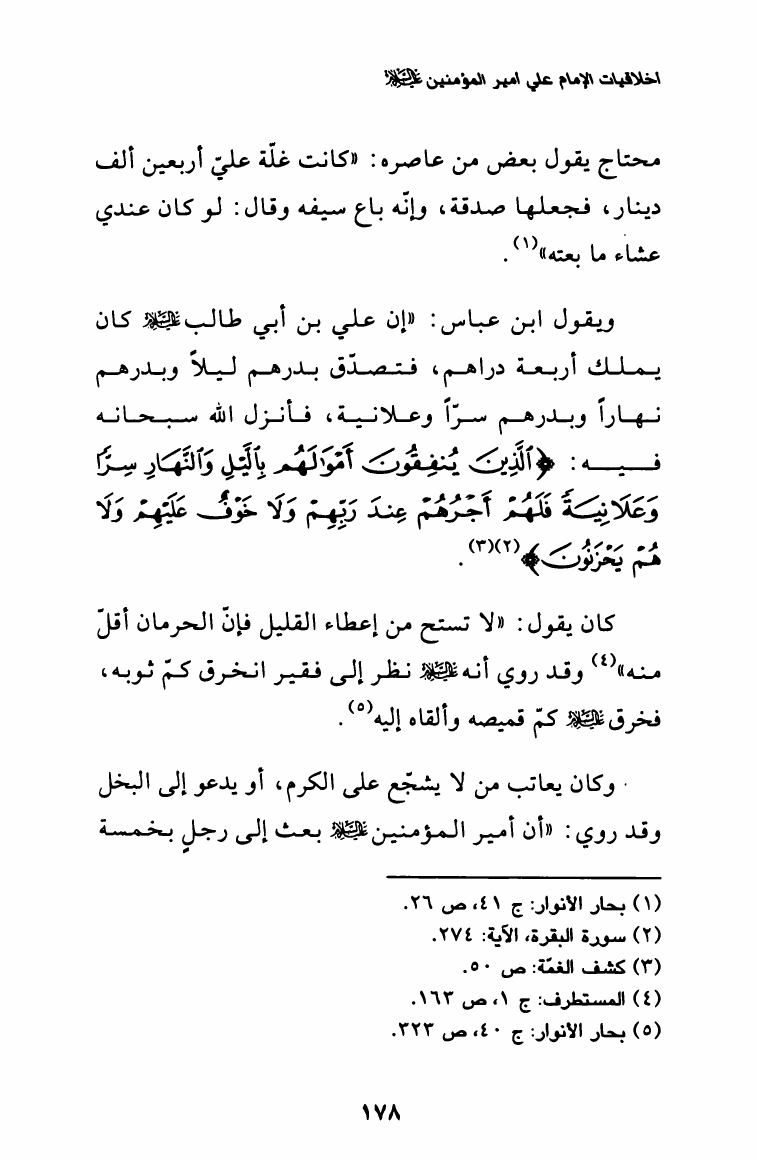 اخلاقيات الإمام علي امير المؤمنين عليه السلام
محتاج يقول بعض من عاصره: «كانت غلّة عليّ أربعين ألف
دينار، فجعلها صدقة، وإنّه باع سيفه وقال: لو كان عندي
عشاء ما بعته»(١).
ويقول ابن عباس: «إن علي بن أبي طالب عليه السلام كان
يملك أربعة دراهم، فتصدّق بدرهم ليلاً وبدرهم
نهاراً وبدرهم سرّاً وعلانية، فأنزل الله سبحانه
فيه: ﴿ٱلَّذِينَ يُنفِقُونَ أَمْوَٰلَهُم بِٱلَّيْلِ وَٱلنَّهَارِ سِرًّا
وَعَلَانِيَةً فَلَهُمْ أَجْرُهُمْ عِندَ رَبِّهِمْ وَلَا خَوْفٌ عَلَيْهِمْ وَلَا
هُمْ يَحْزَنُونَ﴾(٢)(٣).
كان يقول: «لا تستح من إعطاء القليل فإنّ الحرمان أقلّ
منه»(٤) وقد روي أنه عليه السلام نظر إلى فقير انخرق كمّ ثوبه،
فخرق عليه السلام كمّ قميصه وألقاه إليه(٥).
وكان يعاتب من لا يشجّع على الكرم، أو يدعو إلى البخل
وقد روي: «أن أمير المؤمنين عليه السلام بعث إلى رجلٍ بخمسة
(١) بحار الأنوار: ج ٤١، ص ٢٦.
(٢) سورة البقرة، الآية: ٢٧٤.
(٣) كشف الغمّة: ص ٥٠.
(٤) المستطرف: ج ١، ص ١٦٣.
(٥) بحار الأنوار: ج ٤٠، ص ٣٢٣.
١٧٨